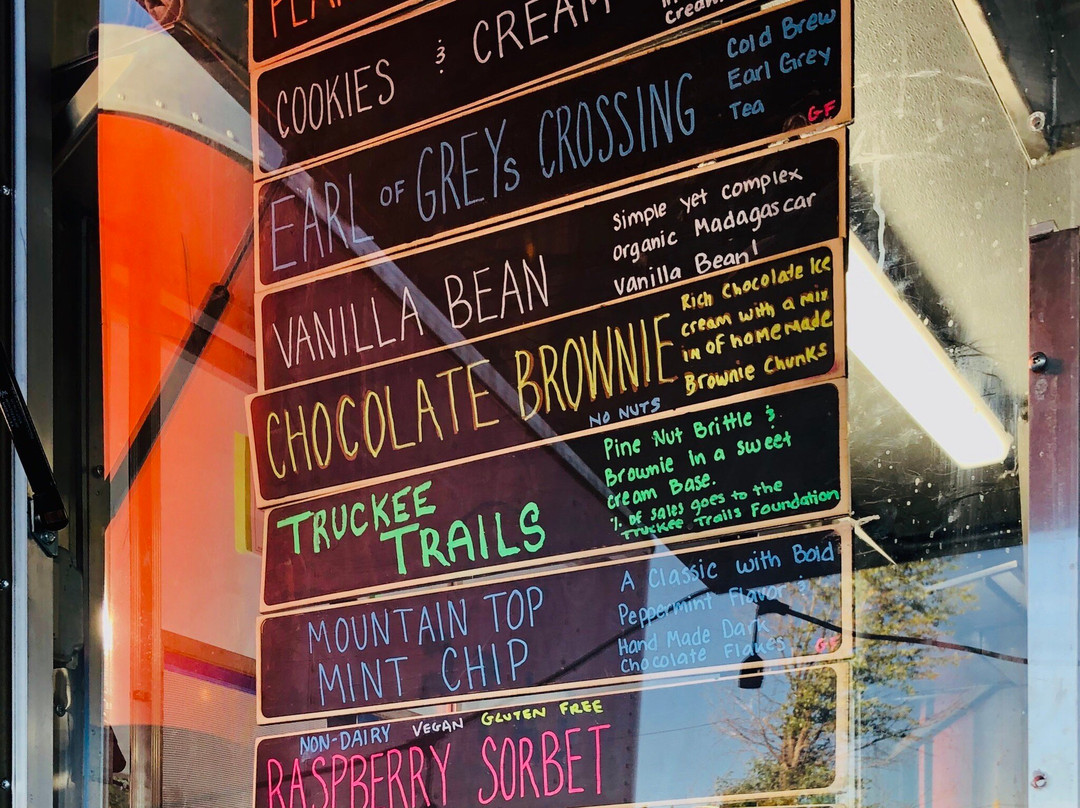 COOKIES & CREAM
cream
EARL OF GREYs CROSSING
Cold Brew
Earl Grey
Tea
GF
VANILLA BEAN
simple yet complex
organic Madagascar
Vanilla Bean!
CHOCOLATE BROWNIE
Rich Chocolate Ice
cream with a mix
in of homemade
Brownie Chunks
NO NUTS
TRUCKEE
TRAILS
Pine Nut Brittle &
Brownie in a sweet
cream Base.
% of sales goes to the
Truckee Trails Foundation
MOUNTAIN TOP
MINT CHIP
A Classic with Bold
Peppermint Flavor &
Hand Made Dark
Chocolate Flakes
GF
NON-DAIRY VEGAN GLUTEN FREE
RASPBERRY SORBET